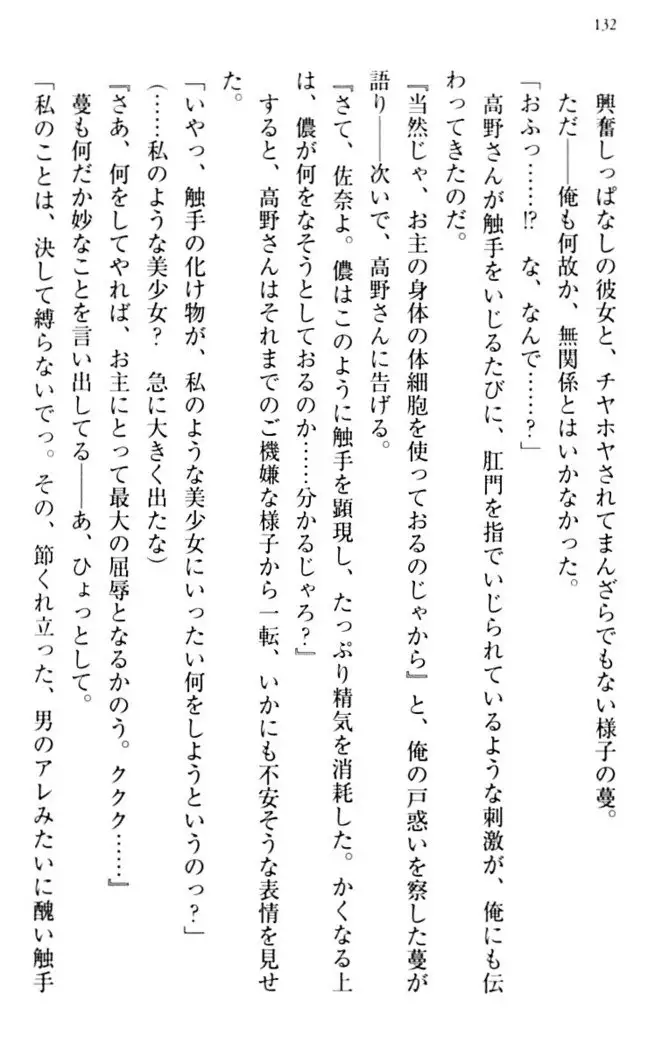 132
興奮しっぱなしの彼女と、チヤホヤされてまんざらでもない様子の蔓。
ただ――俺も何故か、無関係とはいかなかった。
「おふっ……!?　な、なんで……?」
高野さんが触手をいじるたびに、肛門を指でいじられているような刺激が、俺にも伝
わってきたのだ。
『当然じゃ、お主の身体の体細胞を使っておるのじゃから』と、俺の戸惑いを察した蔓が
語り――次いで、高野さんに告げる。
『さて、佐奈よ。儂はこのように触手を顕現し、たっぷり精気を消耗した。かくなる上
は、儂が何をなそうとしておるのか……分かるじゃろ?』
すると、高野さんはそれまでのご機嫌な様子から一転、いかにも不安そうな表情を見せ
た。
「いやっ、触手の化け物が、私のような美少女にいったい何をしようというのっ?」
(……私のような美少女?　急に大きく出たな)
『さあ、何をしてやれば、お主にとって最大の屈辱となるかのう。ククク……』
蔓も何だか妙なことを言い出してる――あ、ひょっとして。
「私のことは、決して縛らないでっ。その、節くれ立った、男のアレみたいに醜い触手